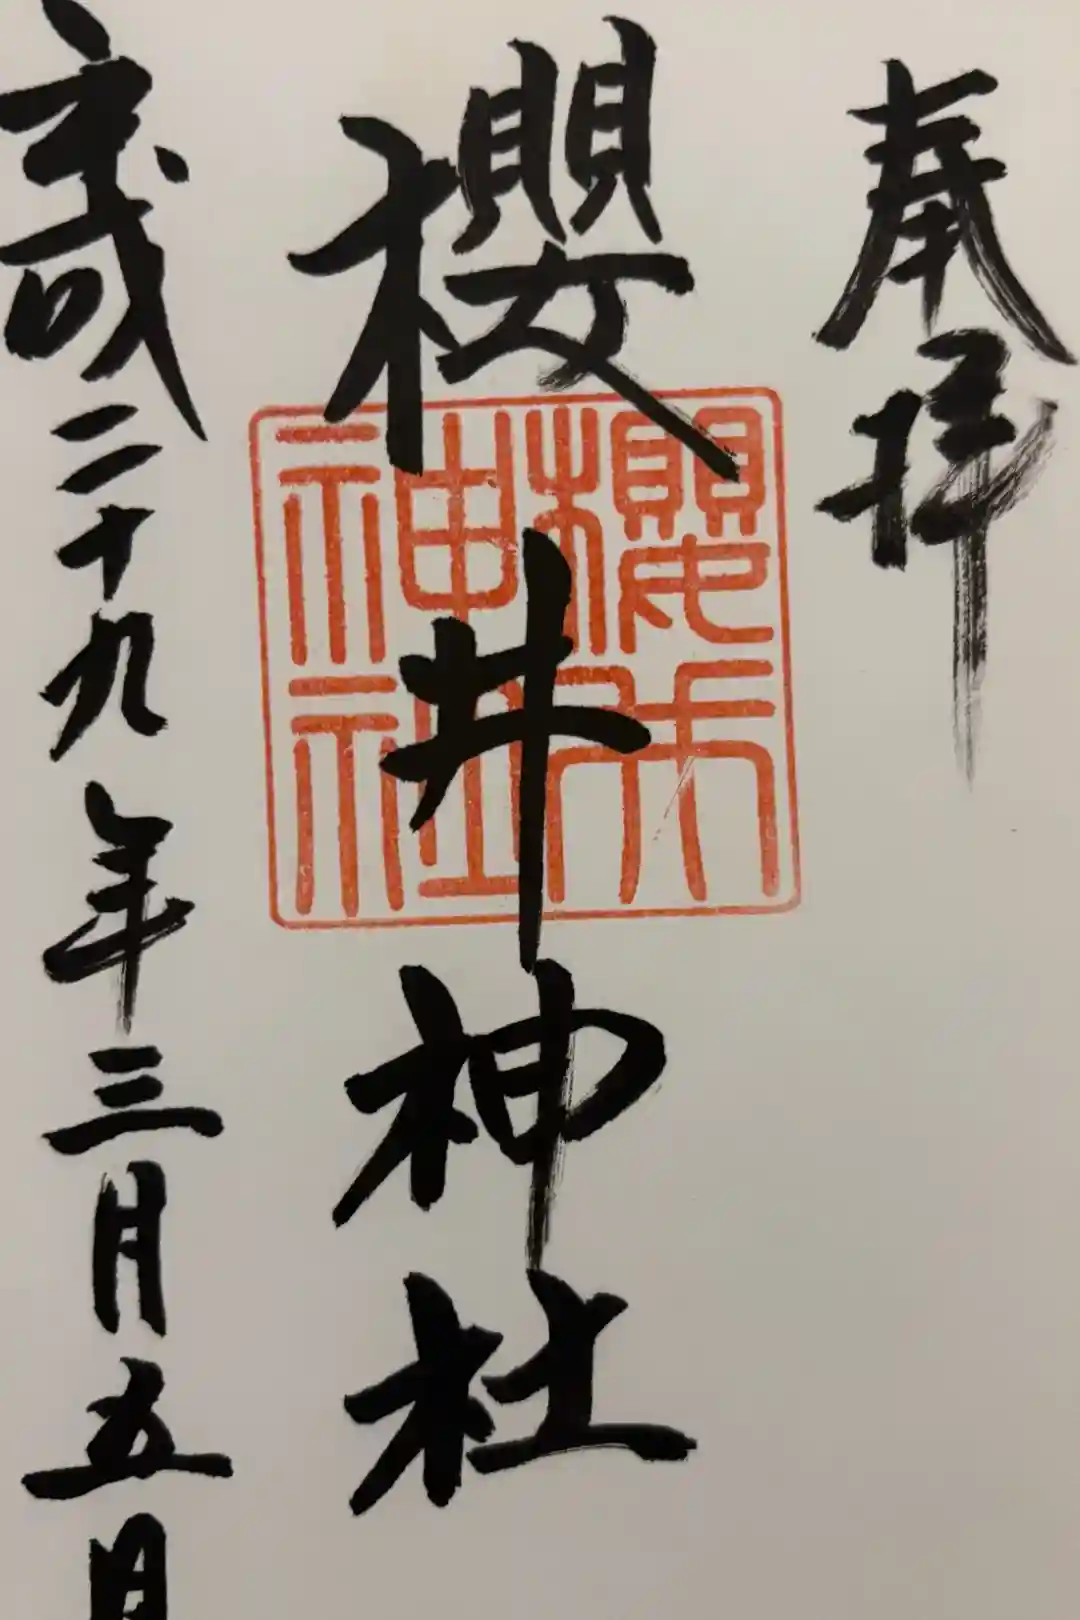 奉拝
櫻井神社
櫻井
神社
平成二十九年三月五日